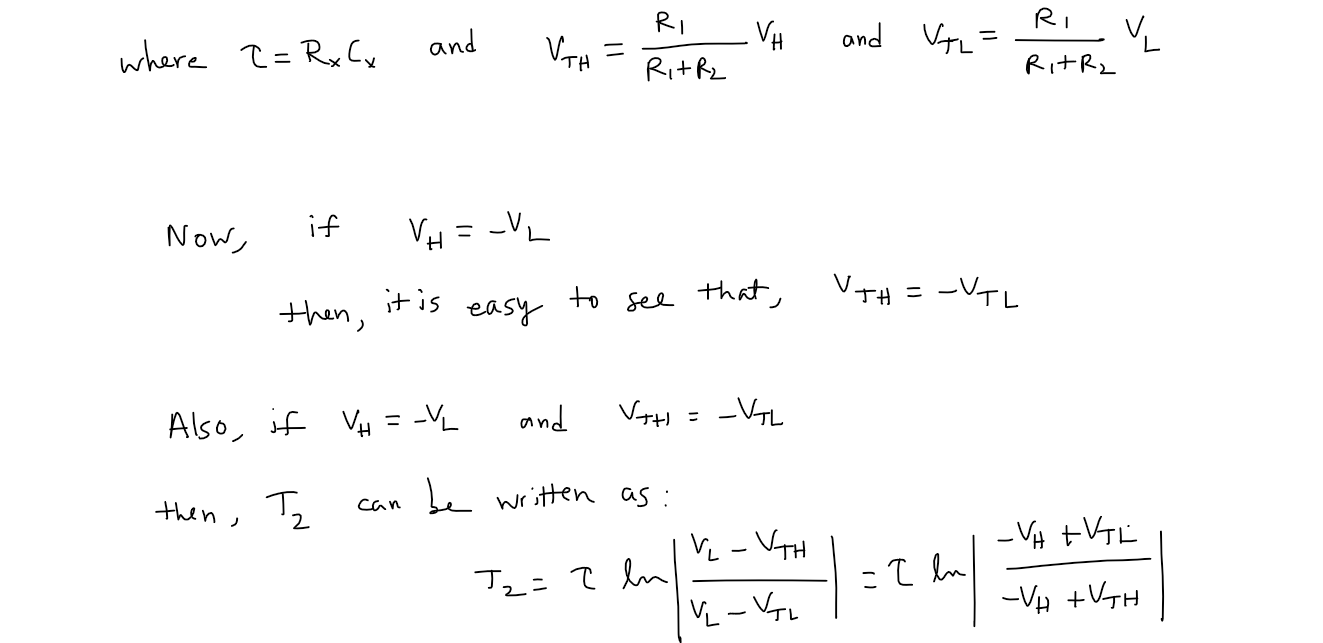 where τ = RₓCₓ and V_TH = R₁/(R₁+R₂) V_H and V_TL = R₁/(R₁+R₂) V_L
Now, if V_H = -V_L
then, it is easy to see that, V_TH = -V_TL
Also, if V_H = -V_L and V_TH = -V_TL
then, T₂ can be written as:
T₂ = τ ln |(V_L - V_TH)/(V_L - V_TL)| = τ ln |(-V_H + V_TL)/(-V_H + V_TH)|